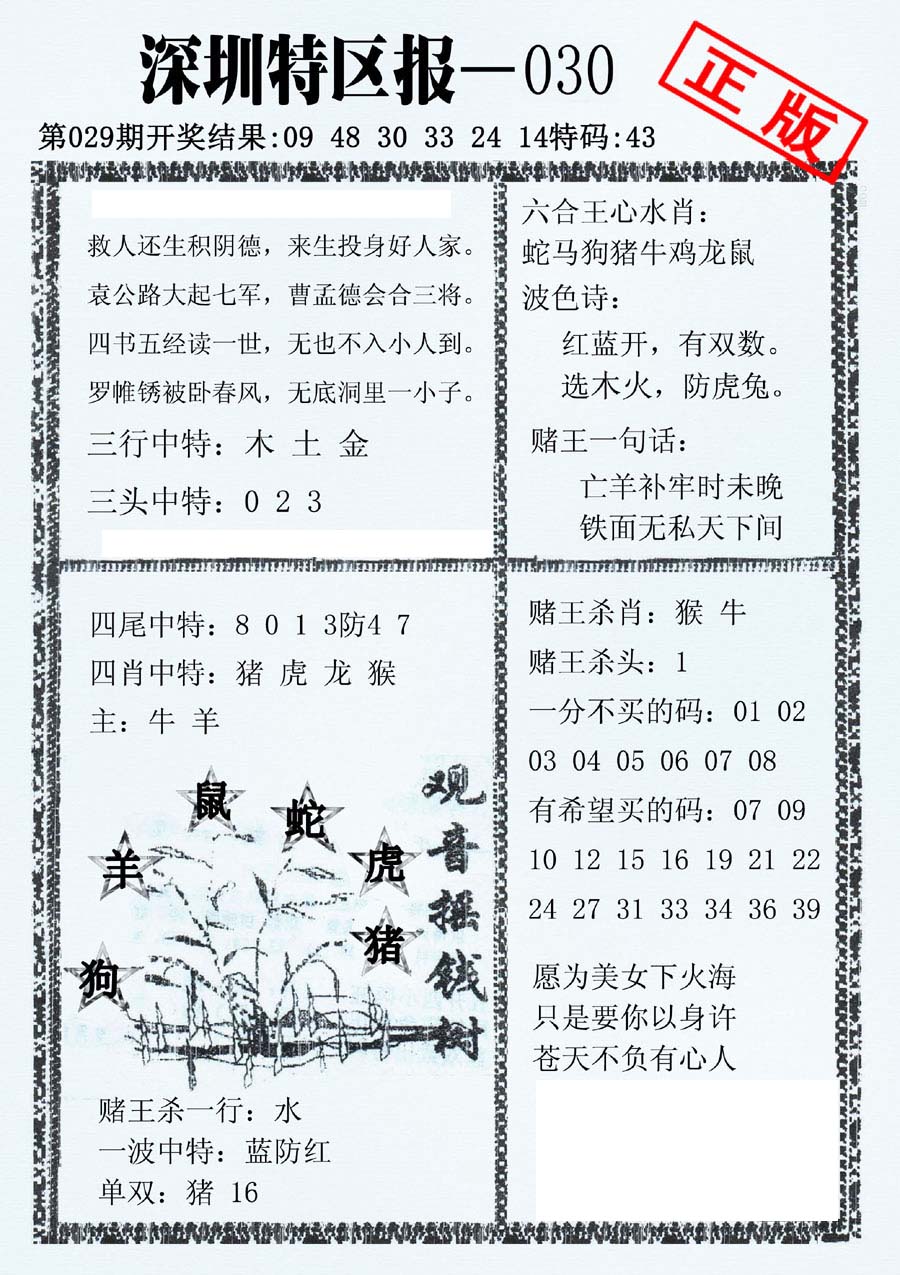 深圳特区报—030
正版
第029期开奖结果:09 48 30 33 24 14特码:43
救人还生积阴德，来生投身好人家。
袁公路大起七军，曹孟德会合三将。
四书五经读一世，无也不入小人到。
罗帷锈被卧春风，无底洞里一小子。
三行中特：木 土 金
三头中特：0 2 3
六合王心水肖：
蛇马狗猪牛鸡龙鼠
波色诗：
红蓝开，有双数。
选木火，防虎兔。
赌王一句话：
亡羊补牢时未晚
铁面无私天下间
四尾中特：8 0 1 3防4 7
四肖中特：猪 虎 龙 猴
主：牛 羊
鼠
蛇
羊
虎
猪
狗
观音摇钱树
赌王杀一行：水
一波中特：蓝防红
单双：猪 16
赌王杀肖：猴 牛
赌王杀头：1
一分不买的码：01 02
03 04 05 06 07 08
有希望买的码：07 09
10 12 15 16 19 21 22
24 27 31 33 34 36 39
愿为美女下火海
只是要你以身许
苍天不负有心人